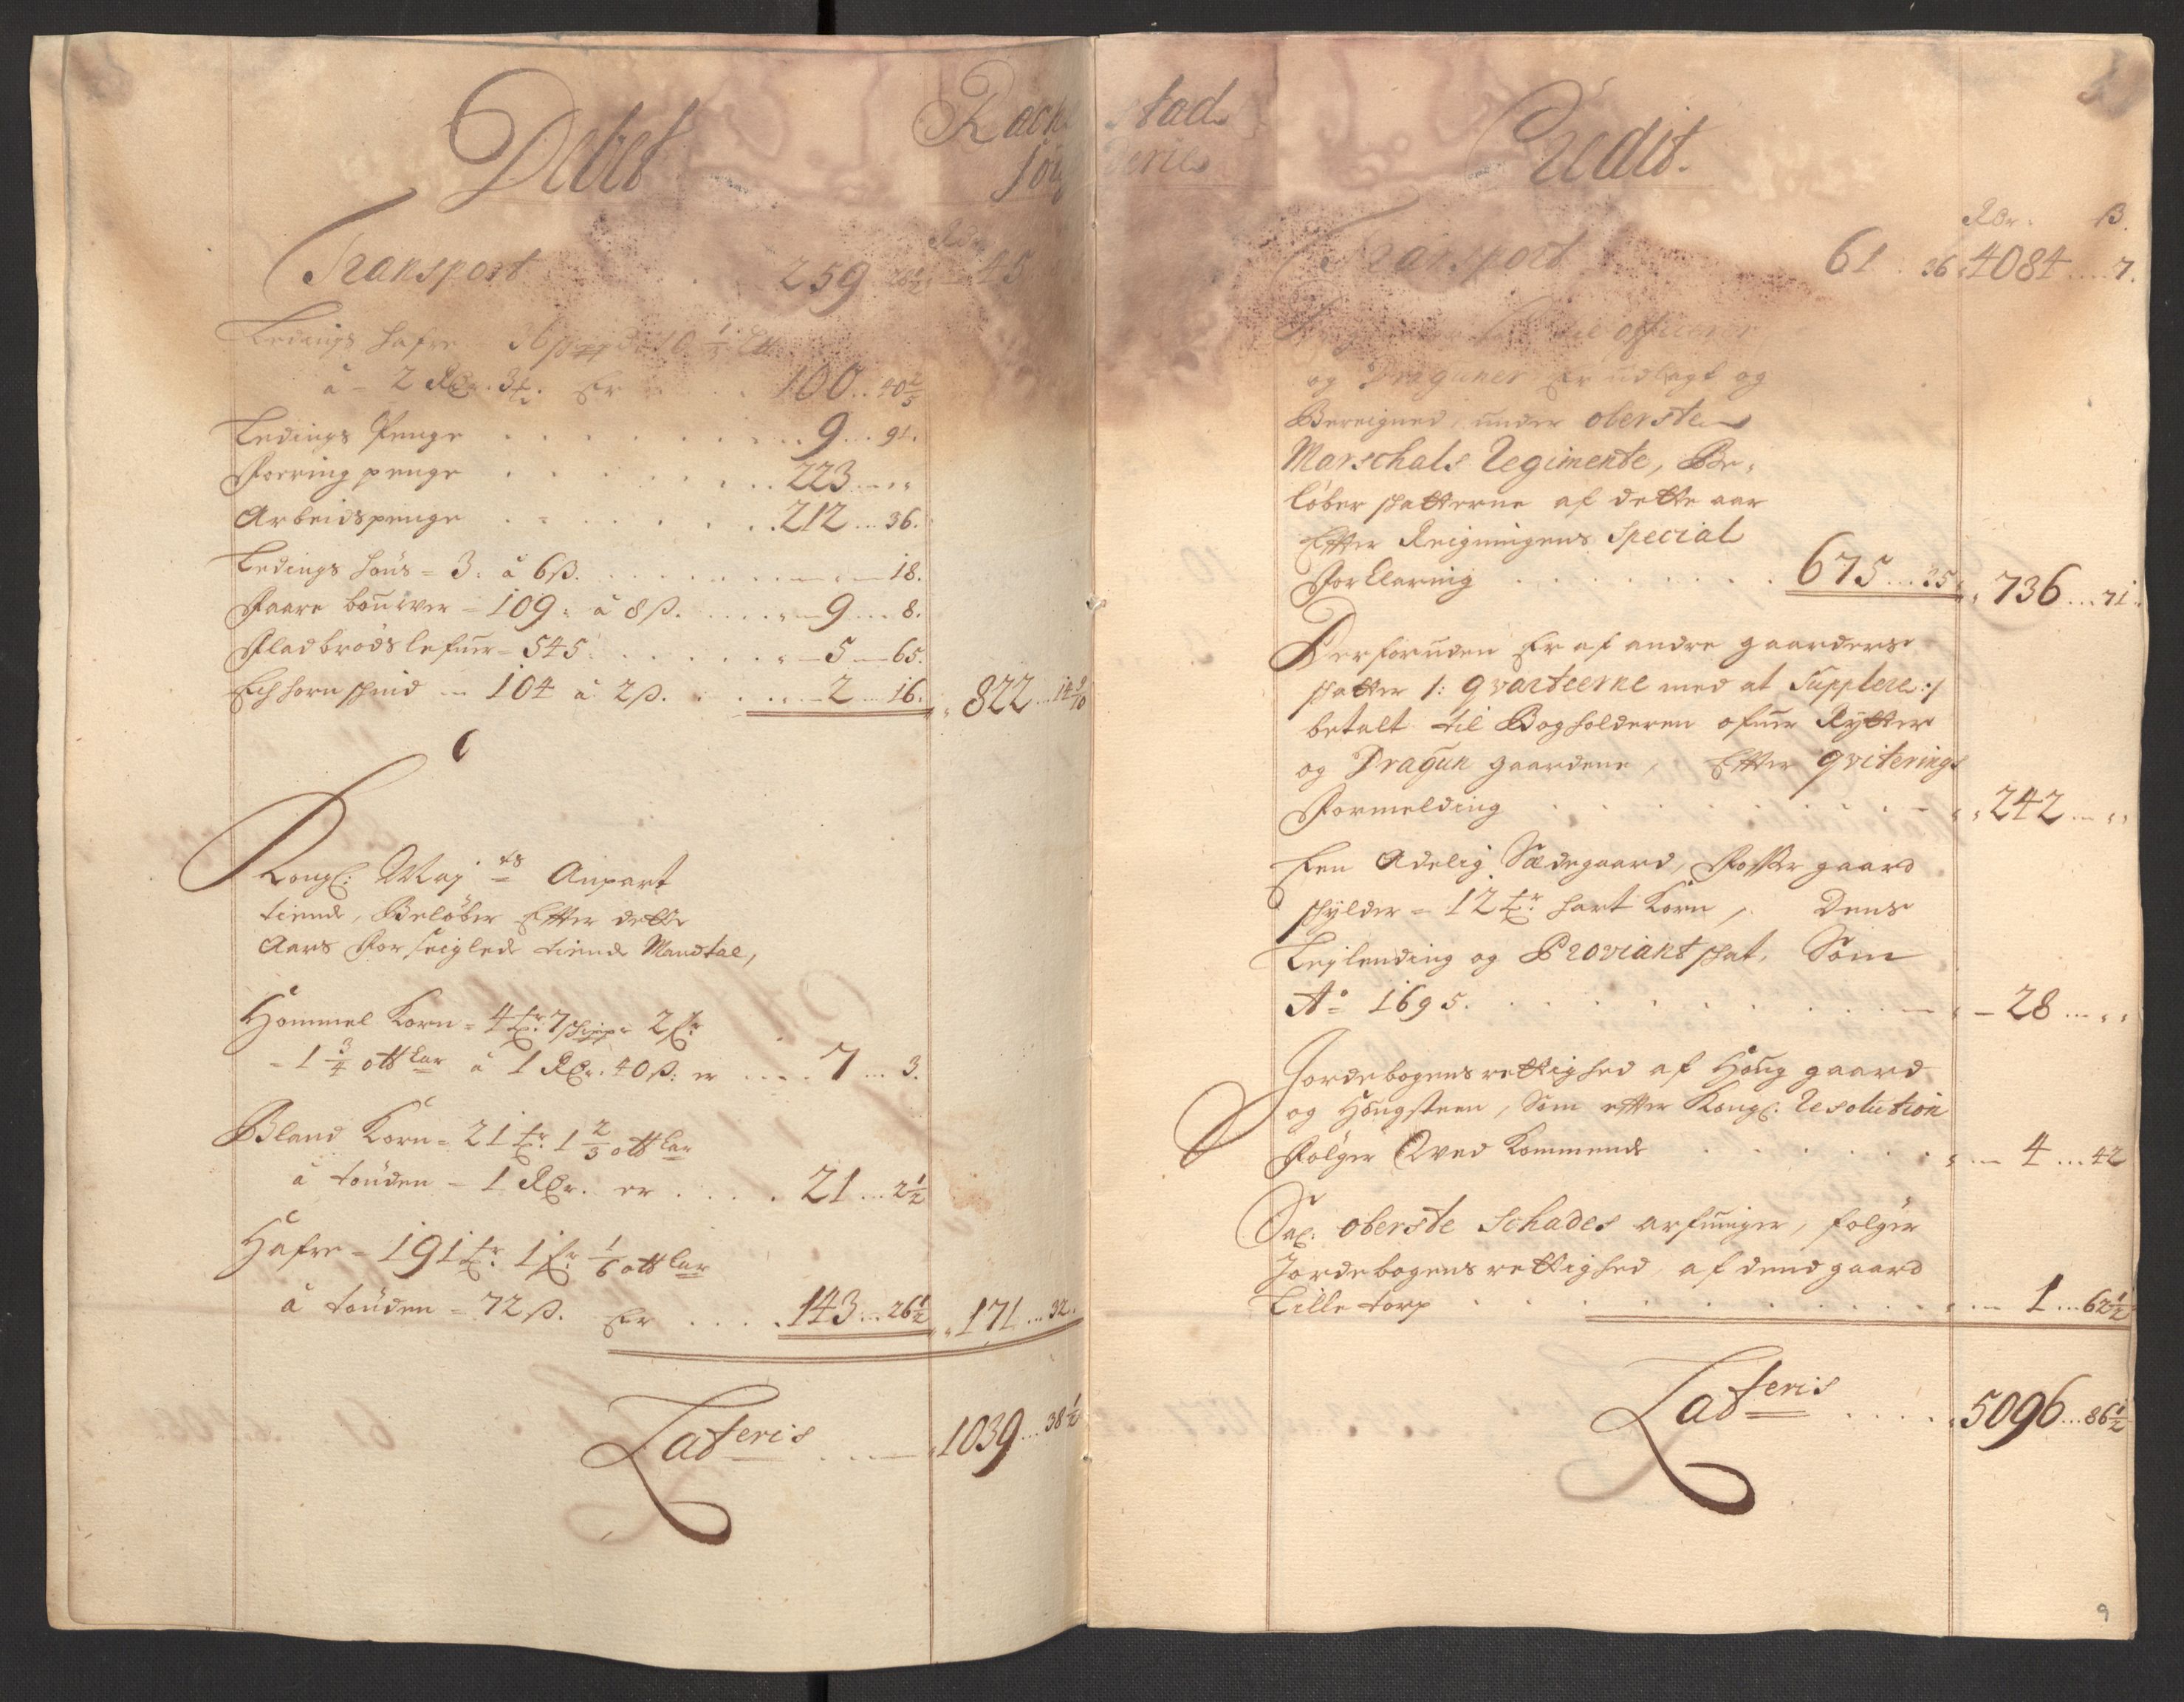 Debet
Rackestad
Transport 259
45
Ledings Hafre - 36 10 1/3
à - 2 Rdr. Er 100 .. 40 2/5
Ledings Penge . . . 9 .. 91.
Foeringpenge . . . 223 ... "
Arbeidspenge . . . 212 ... 36.
Ledings Høns = 3: à 6 ß. . . . 18.
Faare bouwer = 109: à 8 ß. . . . 9 ... 8.
Fladbrøds lefuer = 545: . . . 5 - 65.
Echhorn skind - 104 à 2 ß. . . . 2 ... 16. 822 .. 14 9/10
Kongl: Mayts Anpart
tiende, Beløber Efter dette
Aars Forseiglede tiende Mandtal,
Hommel Korn = 4 tr: 7 schipp: 2 fr:
- 1 3/4 ottKar à 1 Rdr. 40 ß: er .... 7 ... 3.
Bland Korn = 21 tr: 1 2/3 ottKar
à tonden - 1 Rdr. er . . . . 21 ... 2 1/2
Hafre - 191 tr: 1 fr: 1/6 ottKar
à tonden = 72 ß. Er . . . . 143 ... 26 1/2 171 ... 32.
Lateris . . . 1039 ... 38 1/2
Credit.
Rdr: ß.
Transport 61 . 36 4084 .... 7.
officerer
og Draguner er udlagt og
Bereigned, under oberste
Marschals Regimente, Be-
løber skatterne af dette aar
Efter Reigningens Special
Forklaring . . . 675 ... 35 736 ... 71.
Derforuden Er af andre gaarders
skatter /: qvarteerne med at Supplere :/
betalt til Bogholderen ofuer Rytter
og Dragun gaardene, Efter qviterings
Formelding . . . 242 ... "
Een Adelig Sædegaard, Fosser gaard
skylder = 12 tr: hart Korn, Dens
Leylending og Proviant skat, Som
Ao 1695. . . . 28 ... "
Jordebogens rettighed af Houg gaard
og Hougsteen, Som efter Kongl: Resolution
Følger Vedkommende . . . 4 ... 42
Sal: oberste Schades arfuinger, følger
Jordebogens rettighed af dend gaard
Lille torp . . . 1 ... 62 1/2
Lateris . . . . 5096 ... 86 1/2
9